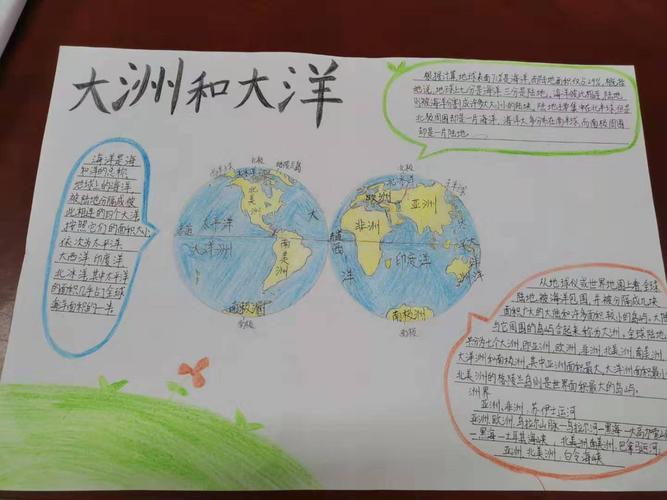 大洲和大洋
根据计算,地球表面71%是海洋,而陆地面积仅占29%,概括
地说,地球上七分是海洋,三分是陆地。海洋彼此相连,陆地
则被海洋分割成许多大大小小的陆块。陆地主要集中在北半球,但是
北极周围却是一片海洋,海洋大多分布在南半球,而南极周围
却是一片陆地。
海洋是海
和洋的总称,
地球上的海洋
被陆地分隔成彼
此相连的四个大洋
按照它们的面积大小
依次为太平洋
大西洋 印度洋
北冰洋,其中太平洋
的面积几乎占全球
海洋面积的一半
北极
北冰洋
格陵兰岛
北美洲
太平洋
大洋洲
赤道
南美洲
大
南极洲
南极
北极
北冰洋
欧洲
亚洲
非洲
印度洋
赤道
西
洋
南极洲
南极
从地球仪或世界地图上看,全球
陆地被海洋包围,并被分隔成几块
面积广大的大陆和许多面积较小的岛屿。大陆
与它周围的岛屿合起来称为大洲。全球陆地
分为七个大洲,即亚洲,欧洲,非洲,北美洲,南美洲,
大洋洲和南极洲,其中亚洲面积最大,大洋洲面积最小
北美洲的格陵兰岛则是世界面积最大的岛屿。
洲界
亚洲,非洲,苏伊士运河
亚洲,欧洲,乌拉尔山脉—乌拉尔河—里海—大高加索山
—黑海—土耳其海峡,北美洲南美洲,巴拿马运河
亚洲 北美洲,白令海峡